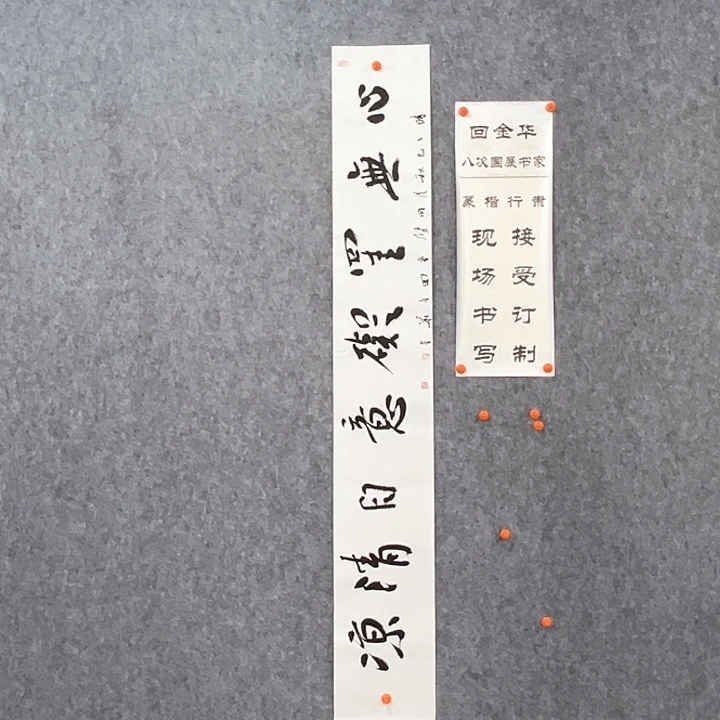 心無罣礙意自清凉
回金华
八次国展书家
篆楷行隶
接受订制
现场书写